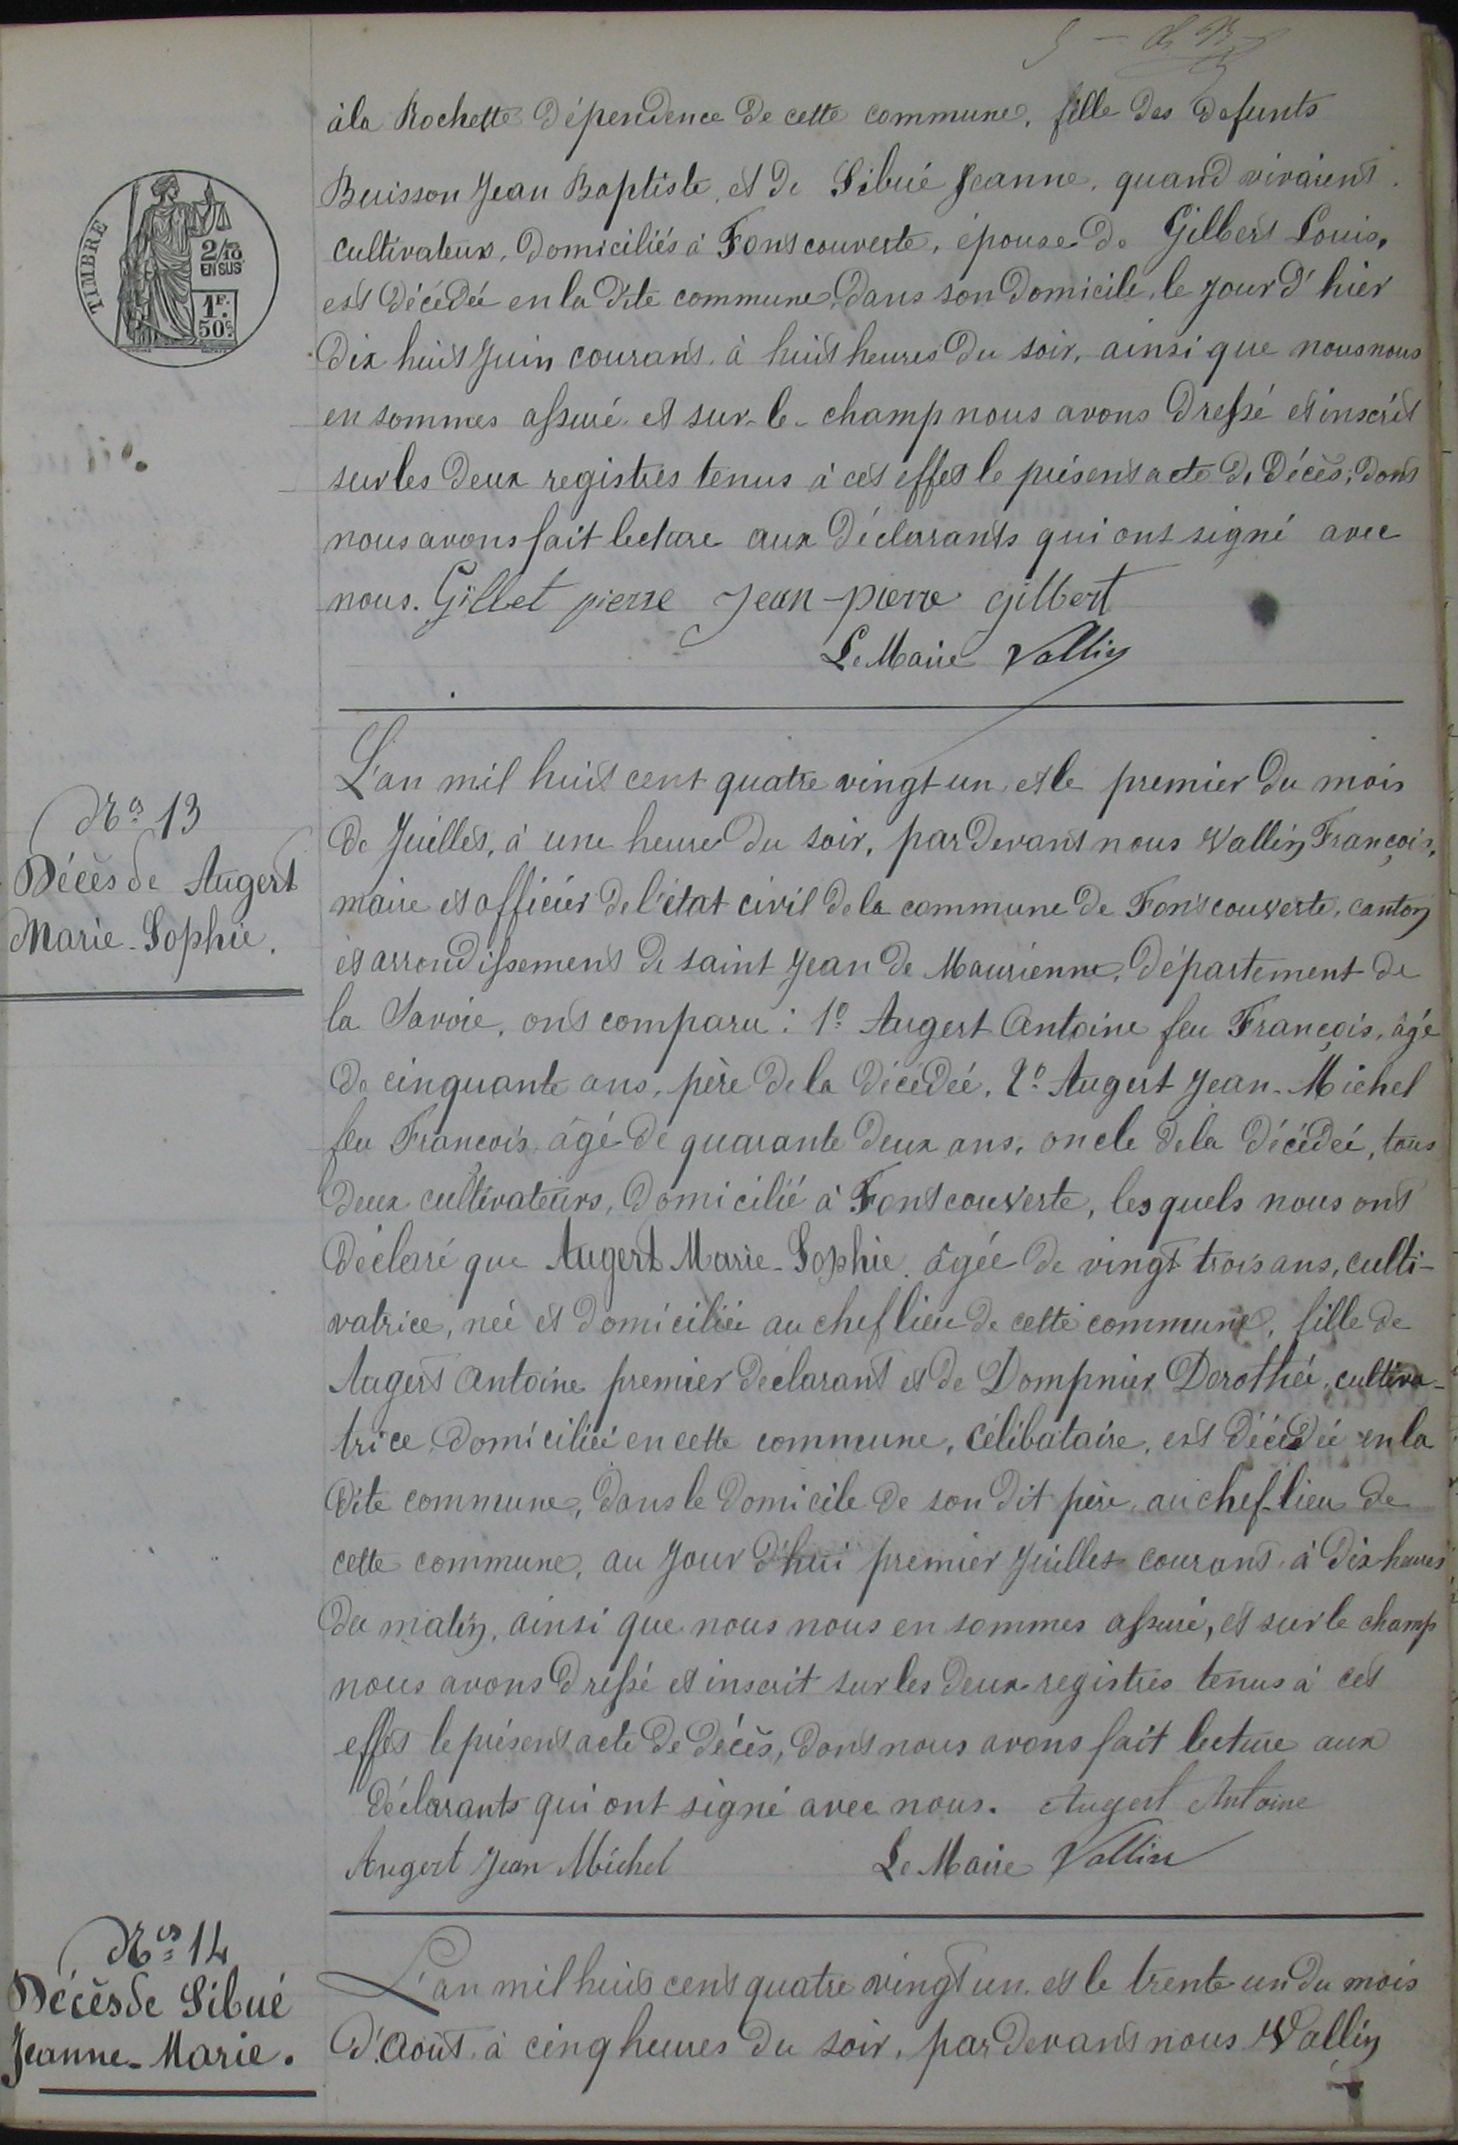 àla Rochette dépendence de cette commune, fille des defunts
Buisson Jean Baptiste, et de Sibué Jeanne, quand vivaient
cultivateurs, domiciliés à Fontcouverte, épouse de Gilbert Louis,
est décédée en la dite commune, dans son domicile, le jour d'hier
dix huit Juin courant, à huit heures du soir, ainsi que nous nous
en sommes assuré et sur-le-champ nous avons dressé et inscrit
sur les deux registres tenus à cet effet le présent acte de Décès, dont
nous avons fait lecture aux déclarants qui ont signé avec
nous. Gillet pierre Jean-pierre gilbert
Le Maire Vallin
TIMBRE
2/10
EN SUS
1F.
50c.
No 13
Décès de Augert
Marie-Sophie.
L'an mil huit cent quatre vingt un et le premier du mois
de Juillet, à une heure du soir, par devant nous Vallin François,
maire et officier de l'état civil de la commune de Fontcouverte, canton
et arrondissement de saint Jean de Maurienne, département de
la Savoie, ont comparu : 1o Augert Antoine feu François, âgé
de cinquante ans, père de la décédée, 2o Augert Jean-Michel
feu François, âgé de quarante deux ans, oncle de la décédée, tous
deux cultivateurs, domicilié à Fontcouverte, lesquels nous ont
déclaré que Augert Marie-Sophie, âgée de vingt trois ans, culti-
vatrice, née et domiciliée au chef lieu de cette commune, fille de
Augert Antoine premier déclarant et de Dompnier Dorothée, cultiva-
trice domiciliée en cette commune, célibataire, est décédée en la
dite commune, dans le domicile de son dit père, au chef-lieu de
cette commune, au jour d'hui premier Juillet courant à dix heures
du matin, ainsi que nous nous en sommes assuré, et sur le champ
nous avons dressé et inscrit sur les deux registres tenus à cet
effet le présent acte de décès, dont nous avons fait lecture aux
déclarants qui ont signé avec nous. Augert Antoine
Augert Jean Michel Le Maire Vallin
No 14
Décès de Sibué
Jeanne-Marie.
L'an mil huit cent quatre vingt un et le trente un du mois
d'Août à cinq heures du soir, par devant nous Vallin